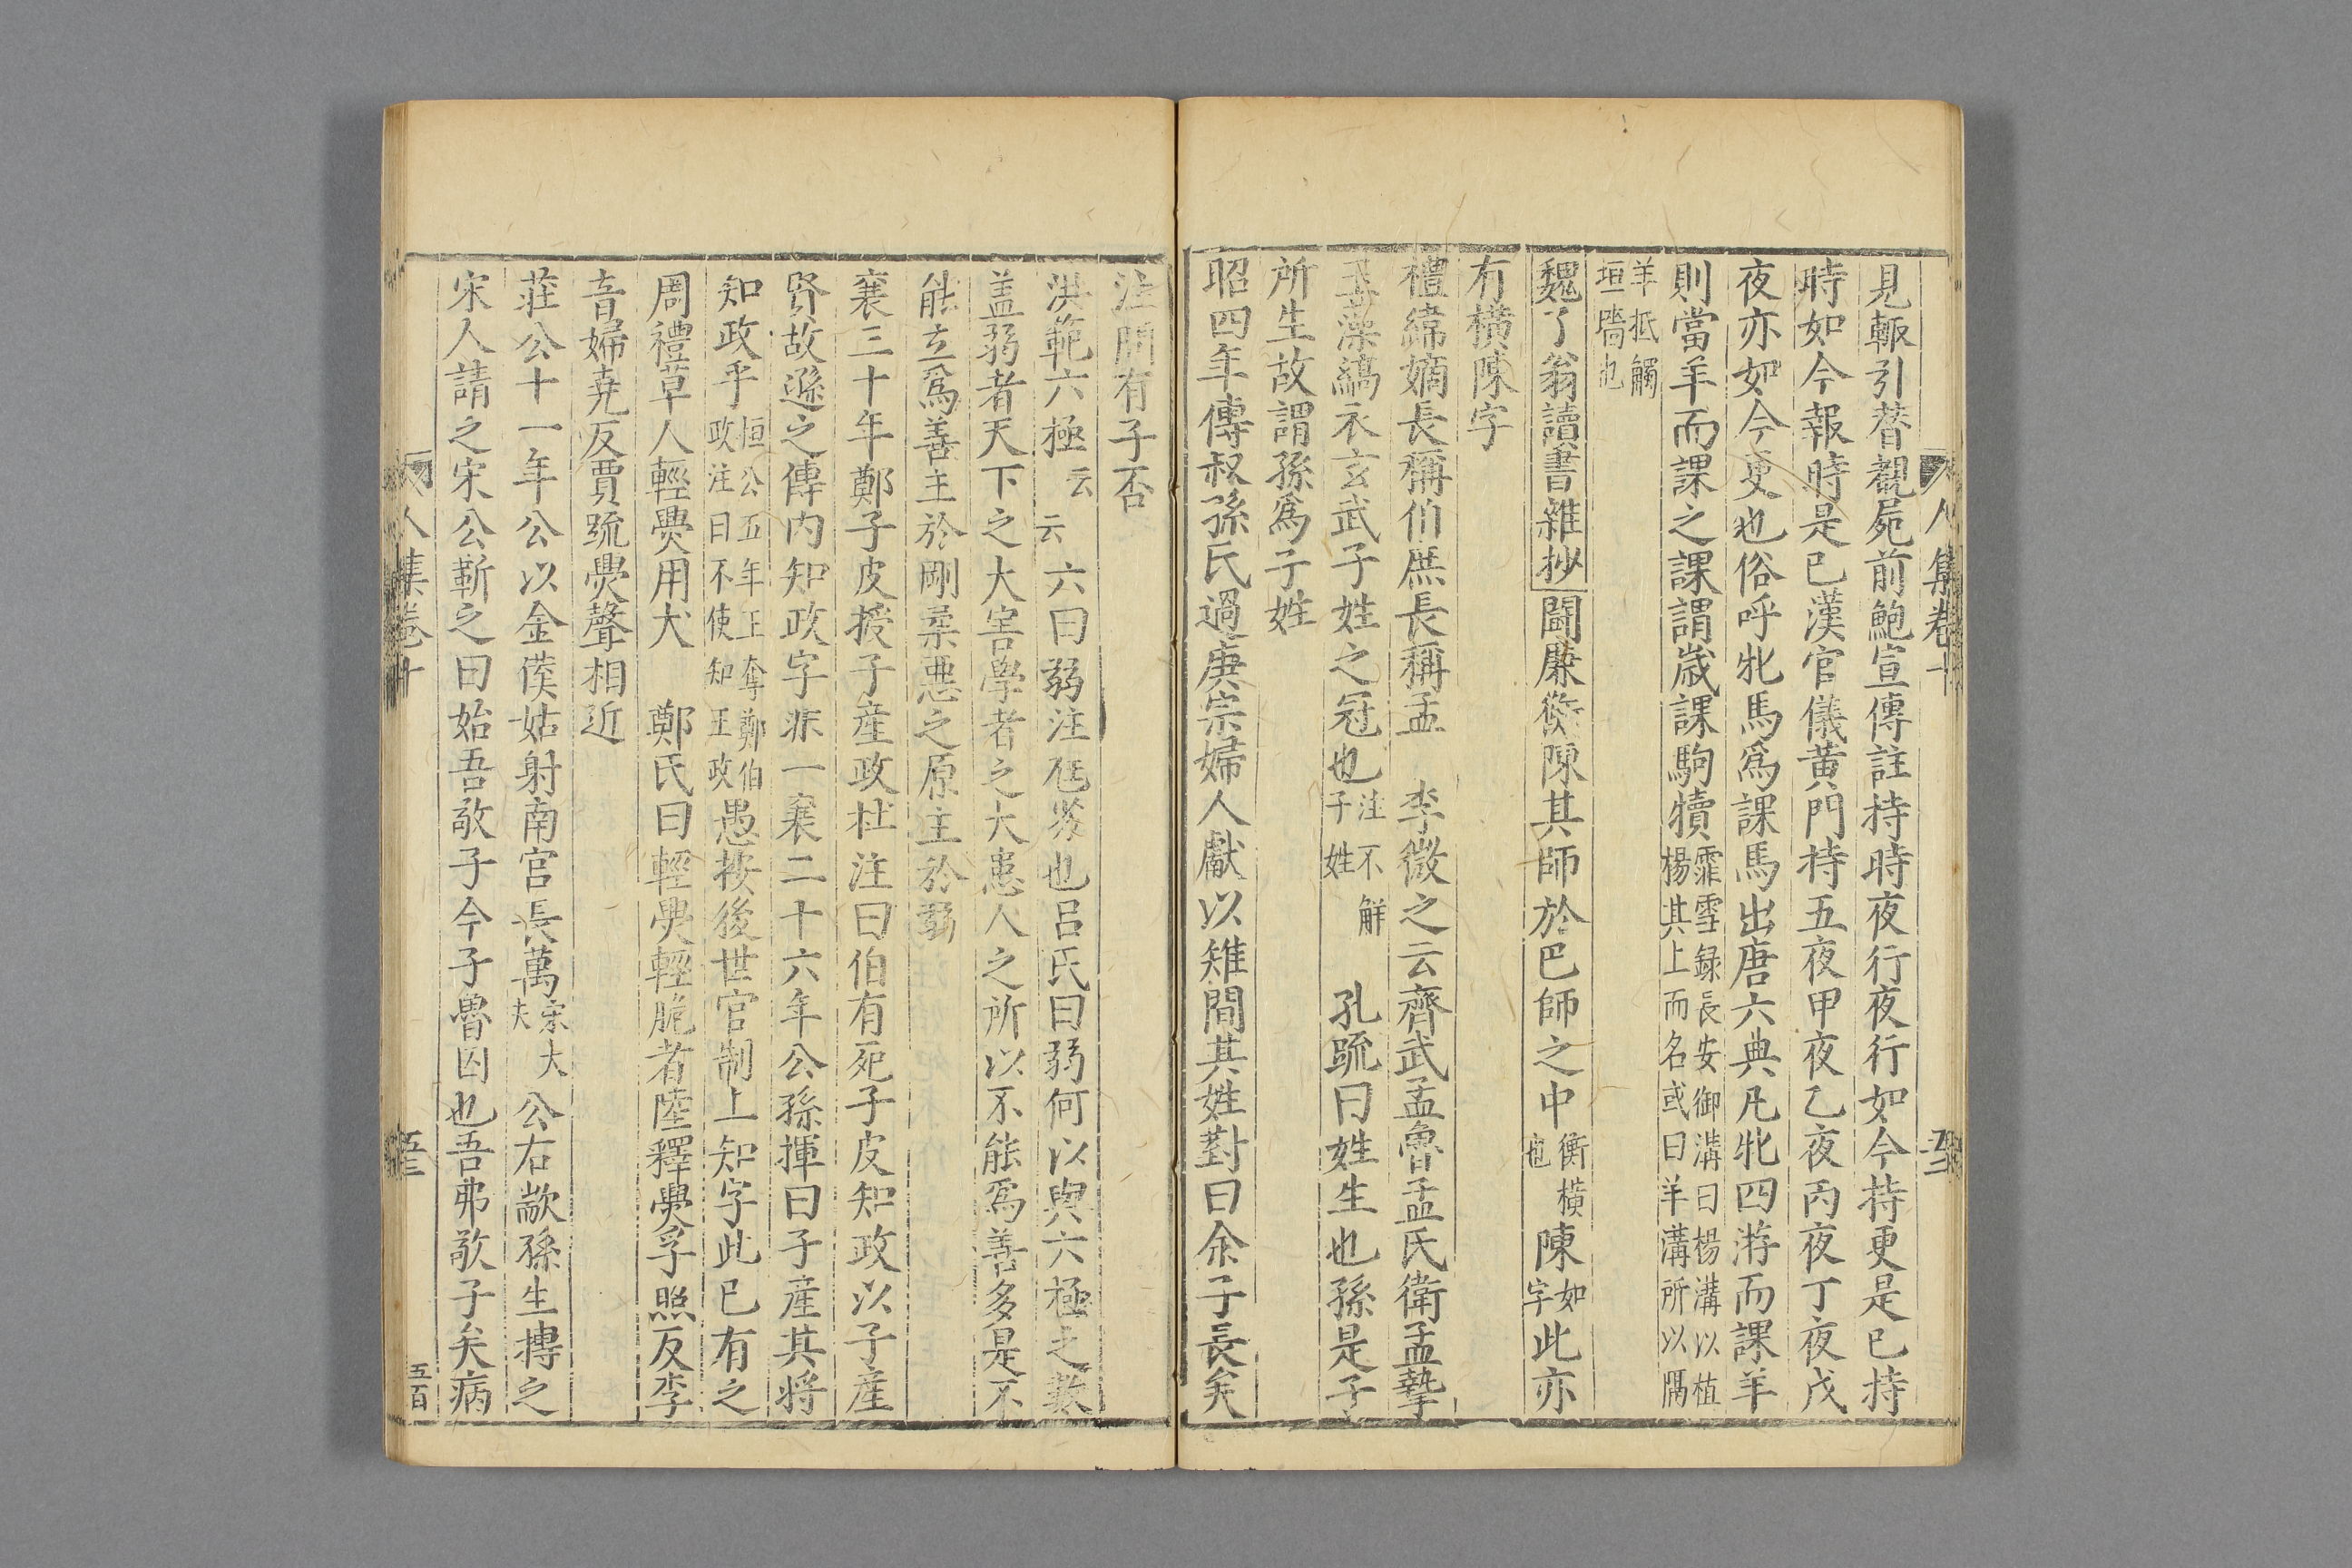 人集卷十
見輙引替襯屍前鮑宣傳註持時夜行夜行如今持更是已持
時如今報時是已漢官儀黄門持五夜甲夜乙夜丙夜丁夜戊
夜亦如今更也俗呼牝馬爲課馬出唐六典凡牝四游而課羊
則當年而課之課謂歳課駒犢霏雪録長安御溝曰楊溝以植楊其上而名或曰羊溝所以隔
羊抵觸垣牆也
魏了翁讀書雜抄鬬廉衡陳其師於巴師之中衡橫也陳如字此亦
有橫陳字
禮緯嫡長稱伯庶長稱孟　李微之云齊武孟魯孟氏衛孟摯
玉藻縞衣玄武子姓之冠也注不解子姓　孔疏曰姓生也孫是子
所生故謂孫爲子姓
昭四年傳叔孫氏過庚宗婦人獻以雉問其姓對曰余子長矣
注問有子否
洪範六極云云六曰弱注尫劣也吕氏曰弱何以與六極之數
盖弱者天下之大害學者之大患人之所以不能爲善多是不
能立爲善主於剛柔惡之原主於弱
襄三十年鄭子皮授子産政杜注曰伯有死子皮知政以子産
賢故遜之傳内知政字非一襄二十六年公孫揮曰子産其將
知政乎桓公五年王奪鄭伯政注曰不使知王政愚按後世官制上知字此已有之
周禮草人輕爂用犬　鄭氏曰輕爂輕脆者陸釋爂孚照反李
音婦尭反賈疏爂聲相近
莊公十一年公以金僕姑射南宫長萬宋大夫公右歂孫生摶之
宋人請之宋公靳之曰始吾敬子今子魯囚也吾弗敬子矣病
人集卷十
五百